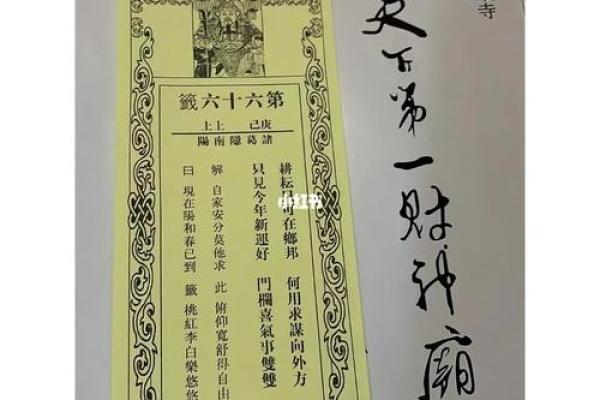 寺
天下第一財神廟
第六十六籤
庚己 上上
諸葛隱南陽
耕耘只可在鄉邦 何用求謀向外方
只見今年新運好 門欄喜氣事雙雙
解 自家安分莫他求 此 俯仰寬舒得自由
曰 現在陽和春已到 籤 桃紅李白樂悠悠
小红书